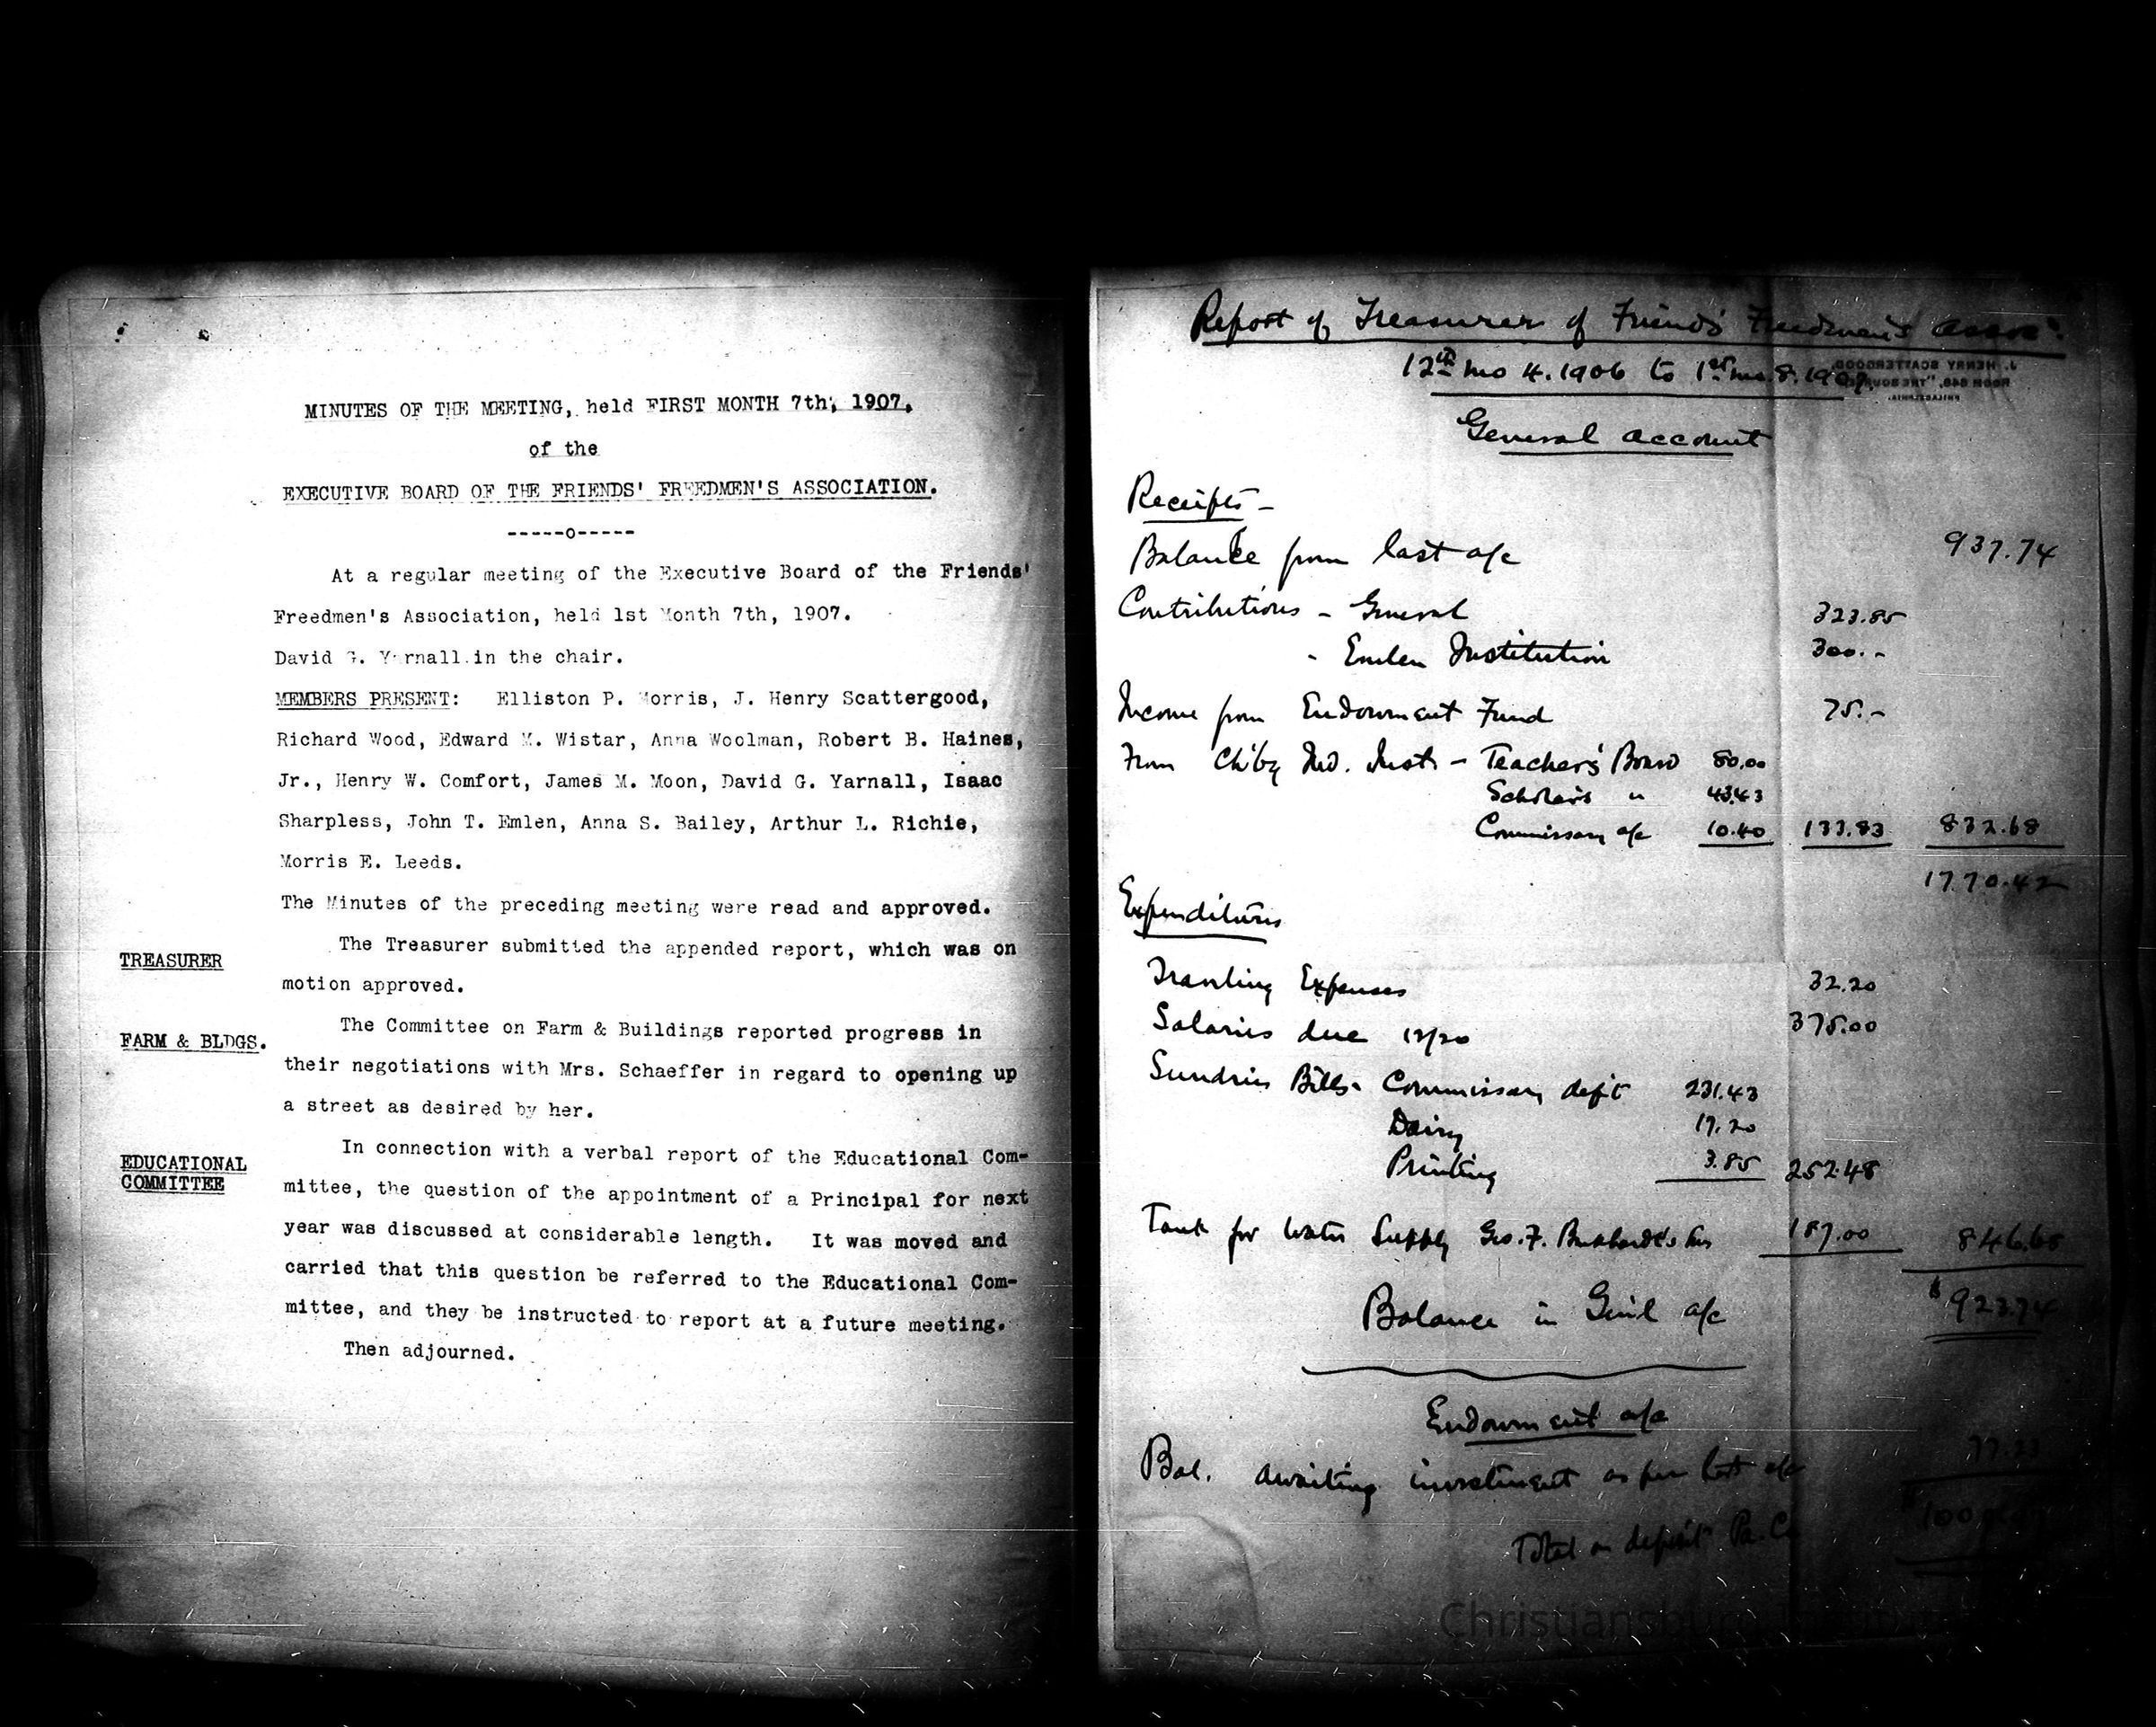 MINUTES OF THE MEETING, held FIRST MONTH 7th, 1907,
of the
EXECUTIVE BOARD OF THE FRIENDS' FREEDMEN'S ASSOCIATION.
-----o-----
At a regular meeting of the Executive Board of the Friends'
Freedmen's Association, held 1st Month 7th, 1907.
David G. Yarnall in the chair.
MEMBERS PRESENT: Elliston P. Morris, J. Henry Scattergood,
Richard Wood, Edward M. Wistar, Anna Woolman, Robert B. Haines,
Jr., Henry W. Comfort, James M. Moon, David G. Yarnall, Isaac
Sharpless, John T. Emlen, Anna S. Bailey, Arthur L. Richie,
Morris E. Leeds.
The Minutes of the preceding meeting were read and approved.
TREASURER
The Treasurer submitted the appended report, which was on
motion approved.
FARM & BLDGS.
The Committee on Farm & Buildings reported progress in
their negotiations with Mrs. Schaeffer in regard to opening up
a street as desired by her.
EDUCATIONAL
COMMITTEE
In connection with a verbal report of the Educational Com-
mittee, the question of the appointment of a Principal for next
year was discussed at considerable length. It was moved and
carried that this question be referred to the Educational Com-
mittee, and they be instructed to report at a future meeting.
Then adjourned.
Report of Treasurer of Friends' Freedmen's Assoc'n.
12th mo 4. 1906 to 1st mo. 8. 1907.
J. HENRY SCATTERGOOD
PHILADELPHIA.
General Account
Receipts -
Balance from last a/c 937.74
Contributions - General 323.85
- Emlen Institution 300.-
Income from Endowment Fund 75.-
From Ch'bg Ind. Inst. - Teachers' Board 80.00
Scholars " 43.43
Commissary a/c 10.40 133.83 832.68
1770.42
Expenditures
Traveling Expenses 32.20
Salaries due 12/20 375.00
Sundries Bills - Commissary dep't 231.43
Dairy 17.20
Printing 3.85 252.48
Tank for Water Supply Geo. F. 187.00 846.68
Balance in Gen'l a/c $923.74
Endowment a/c
Bal. awaiting investment as per last a/c 77.23
Total on deposit Pa. Co.
Christiansburg